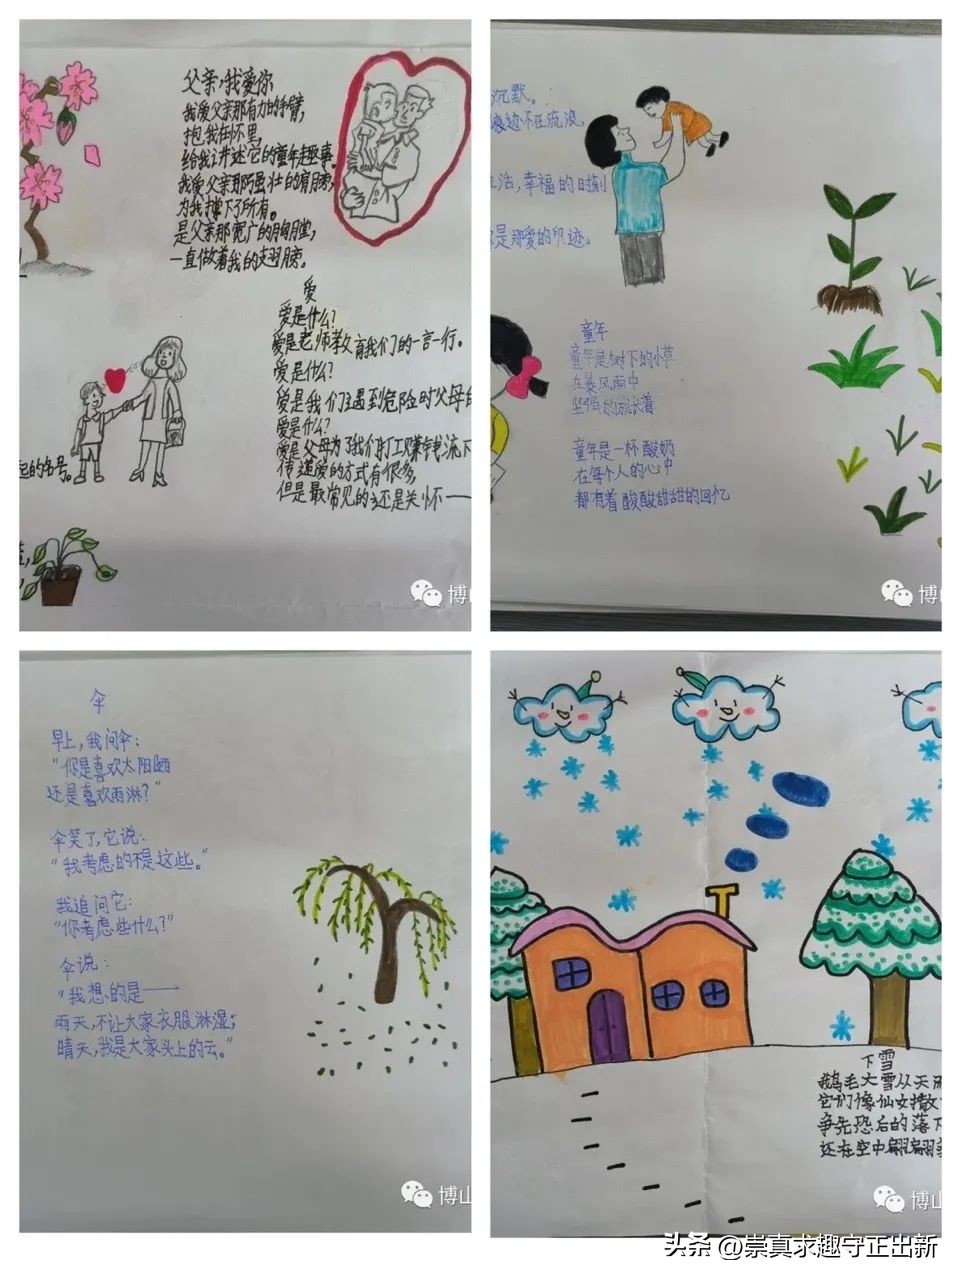 父亲，我爱你
我爱父亲那有力的手臂，
抱我在怀里，
给我讲述它的童年趣事。
我爱父亲那强壮的肩膀，
为我撑下了所有。
是父亲那宽广的胸膛，
一直做着我的翅膀。
爱
爱是什么？
爱是老师教育我们的一言一行。
爱是什么？
爱是我们遇到危险时父母的
爱是什么？
爱是父母为了我们打工赚钱流下
传递爱的方式有很多，
但是最常见的还是关怀一
起的名号。
博山
沉默。
痕迹不在流浪，
生活，幸福的时刻
你是那爱的印迹。
童年
童年是树下的小草
在暴风雨中
坚强的成长着
童年是一杯酸奶
在每个人的心中
都有着酸酸甜甜的回忆
博山
伞
早上，我问伞：
“你是喜欢太阳晒
还是喜欢雨淋？”
伞笑了，它说：
“我考虑的不是这些。”
我追问它：
“你考虑些什么？”
伞说：
“我想的是——
雨天，不让大家衣服淋湿；
晴天，我是大家头上的云。”
博山
下雪
鹅毛大雪从天而
它们像仙女撒
争先恐后的落下
还在空中翩翩
博山
头条 @崇真求趣守正出新